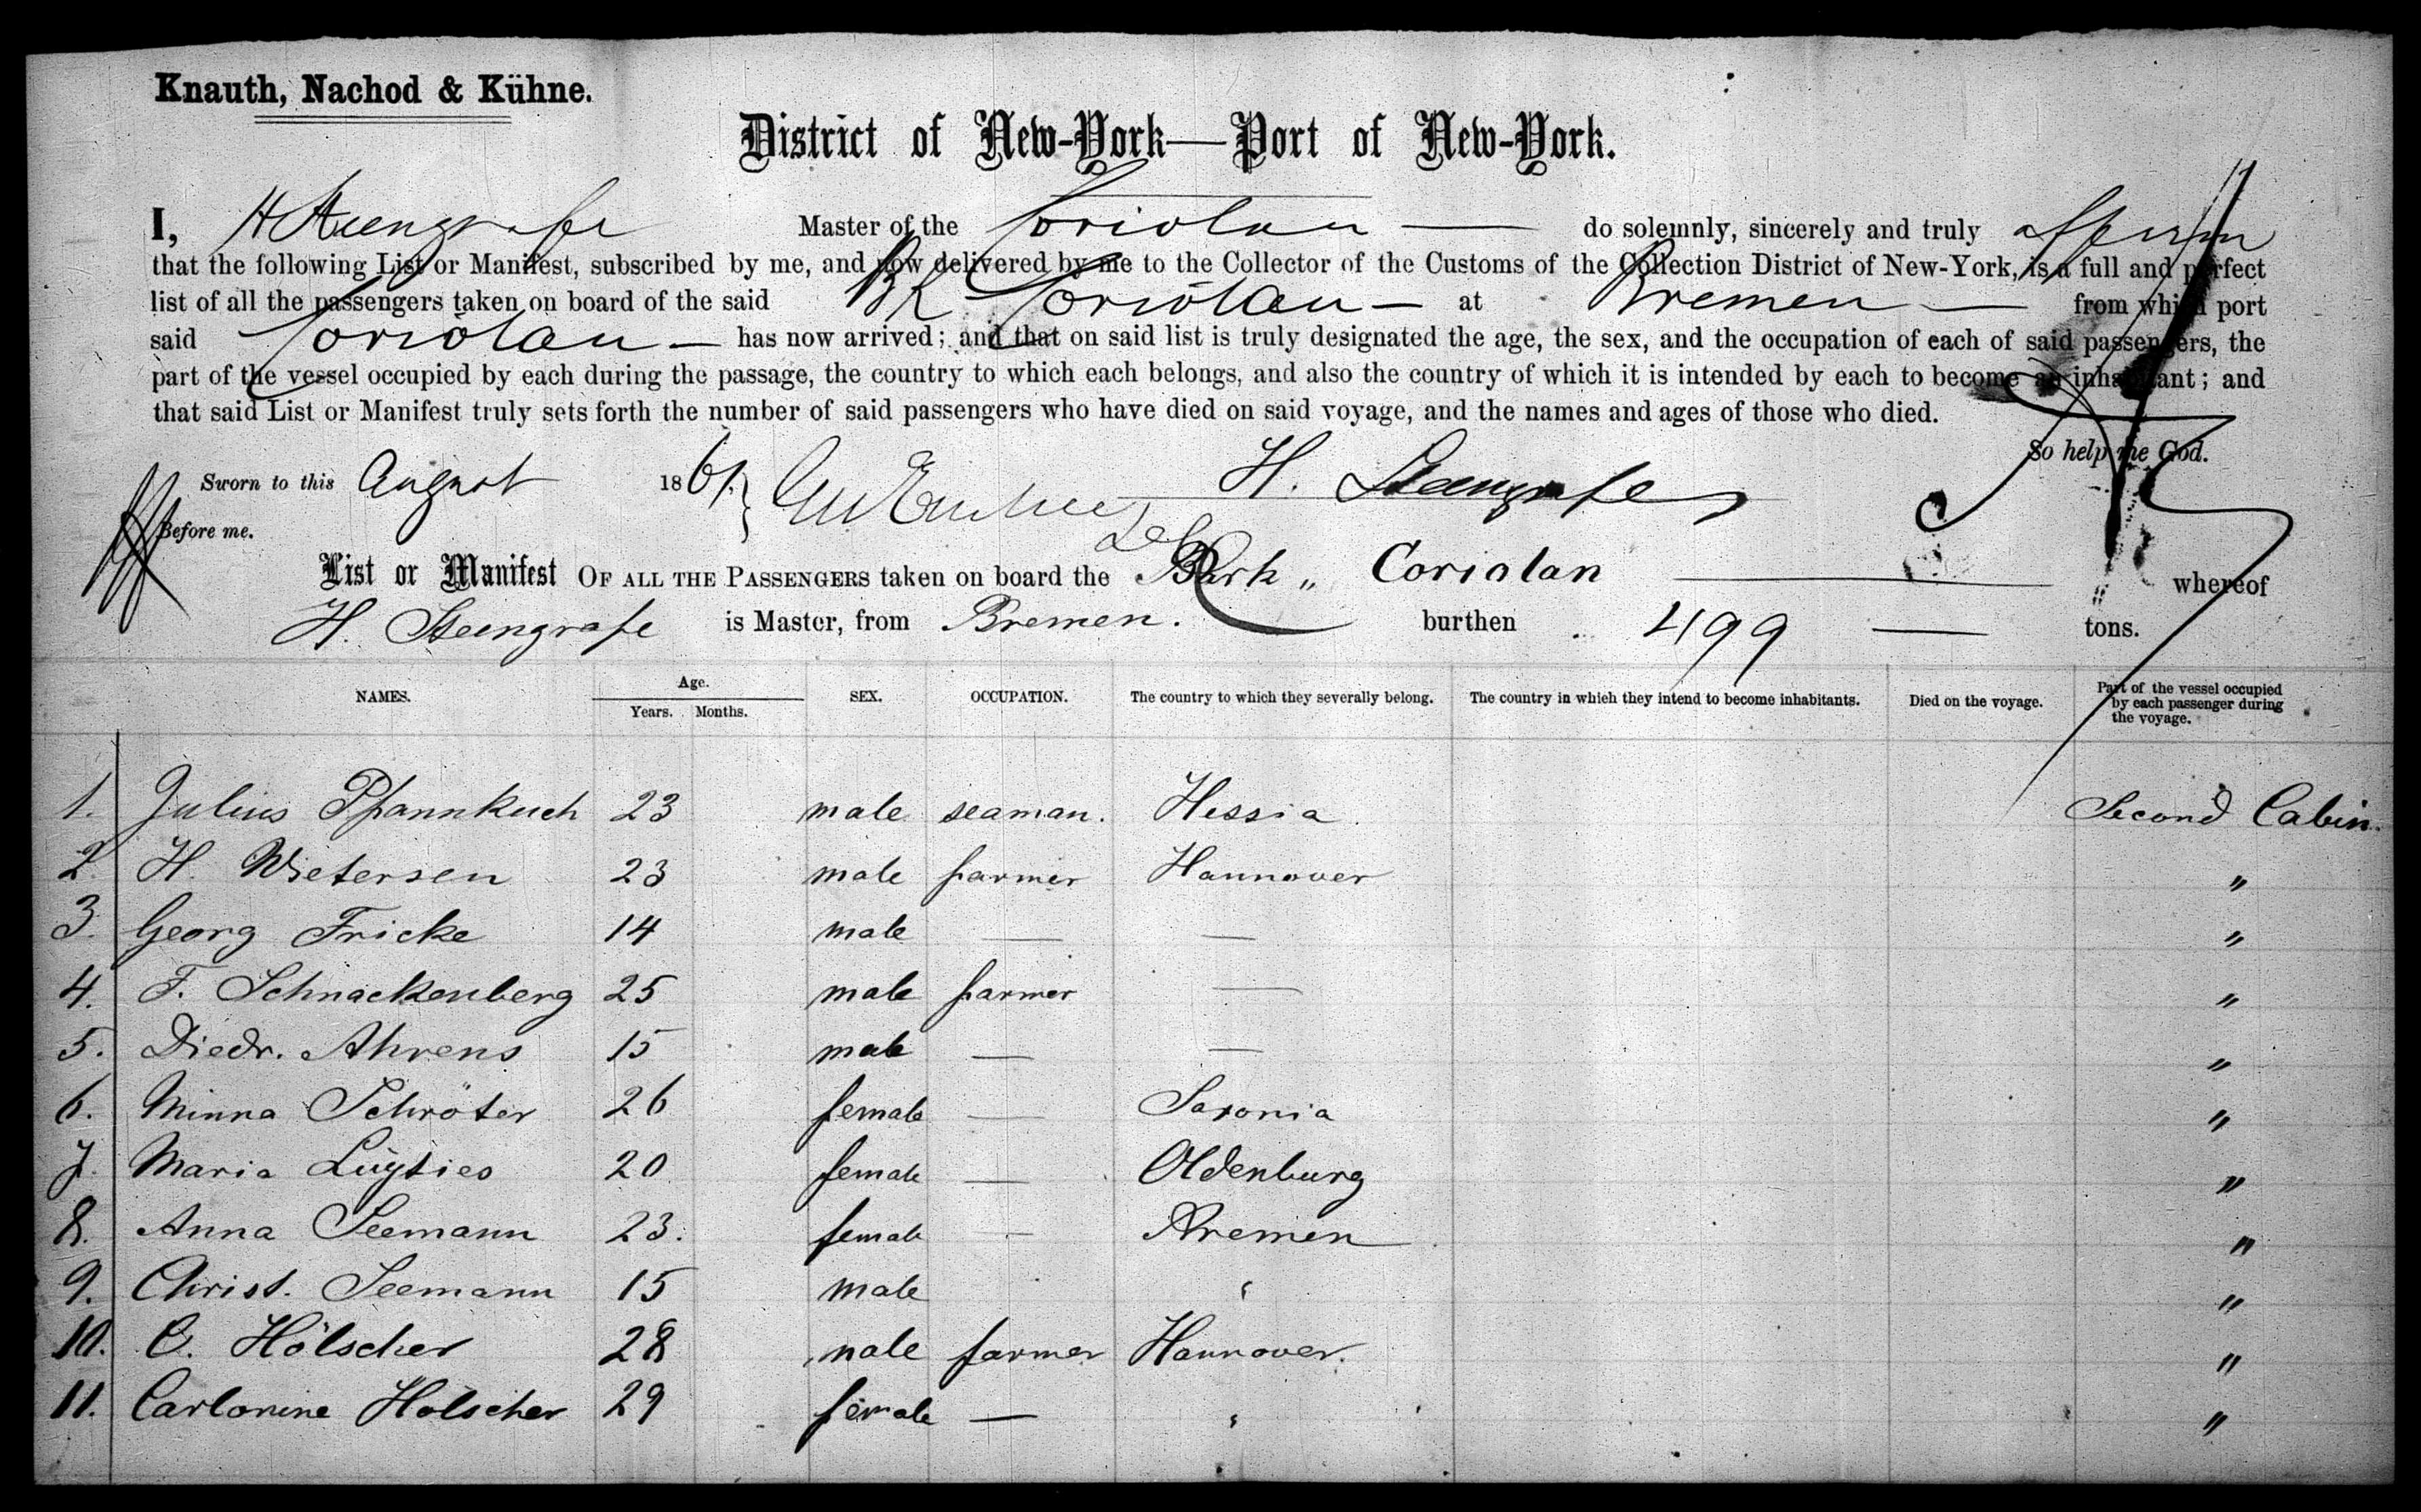 Knauth, Nachod & Kühne.
District of New-York—Port of New-York.
I, H Steengrafe Master of the Coriolan — do solemnly, sincerely and truly affirm
that the following List or Manifest, subscribed by me, and now delivered by me to the Collector of the Customs of the Collection District of New-York, is a full and perfect
list of all the passengers taken on board of the said Bk Coriolan — at Bremen — from which port
said Coriolan — has now arrived; and that on said list is truly designated the age, the sex, and the occupation of each of said passengers, the
part of the vessel occupied by each during the passage, the country to which each belongs, and also the country of which it is intended by each to become an inhabitant; and
that said List or Manifest truly sets forth the number of said passengers who have died on said voyage, and the names and ages of those who died.
So help me God.
Sworn to this August 1861. H. Steengrafe
Before me.
List or Manifest OF ALL THE PASSENGERS taken on board the Bark „ Coriolan — whereof
H. Steengrafe is Master, from Bremen. burthen 499 — tons.
NAMES. Age. Years. Months. SEX. OCCUPATION. The country to which they severally belong. The country in which they intend to become inhabitants. Died on the voyage. Part of the vessel occupied by each passenger during the voyage.
1. Julius Pfannkuch 23 male seaman. Hessia. Second Cabin.
2. H. Wietersen 23 male farmer Hannover "
3. Georg Fricke 14 male — — "
4. F. Schnackenberg 25 male farmer — "
5. Diedr. Ahrens 15 male — — "
6. Minna Schröter 26 female — Saxonia "
7. Maria Lüyties 20 female — Oldenburg "
8. Anna Seemann 23. female — Bremen "
9. Christ. Seemann 15 male " "
10. C. Hölscher 28 male farmer Hannover. "
11. Carlonine Holscher 29 female — " "